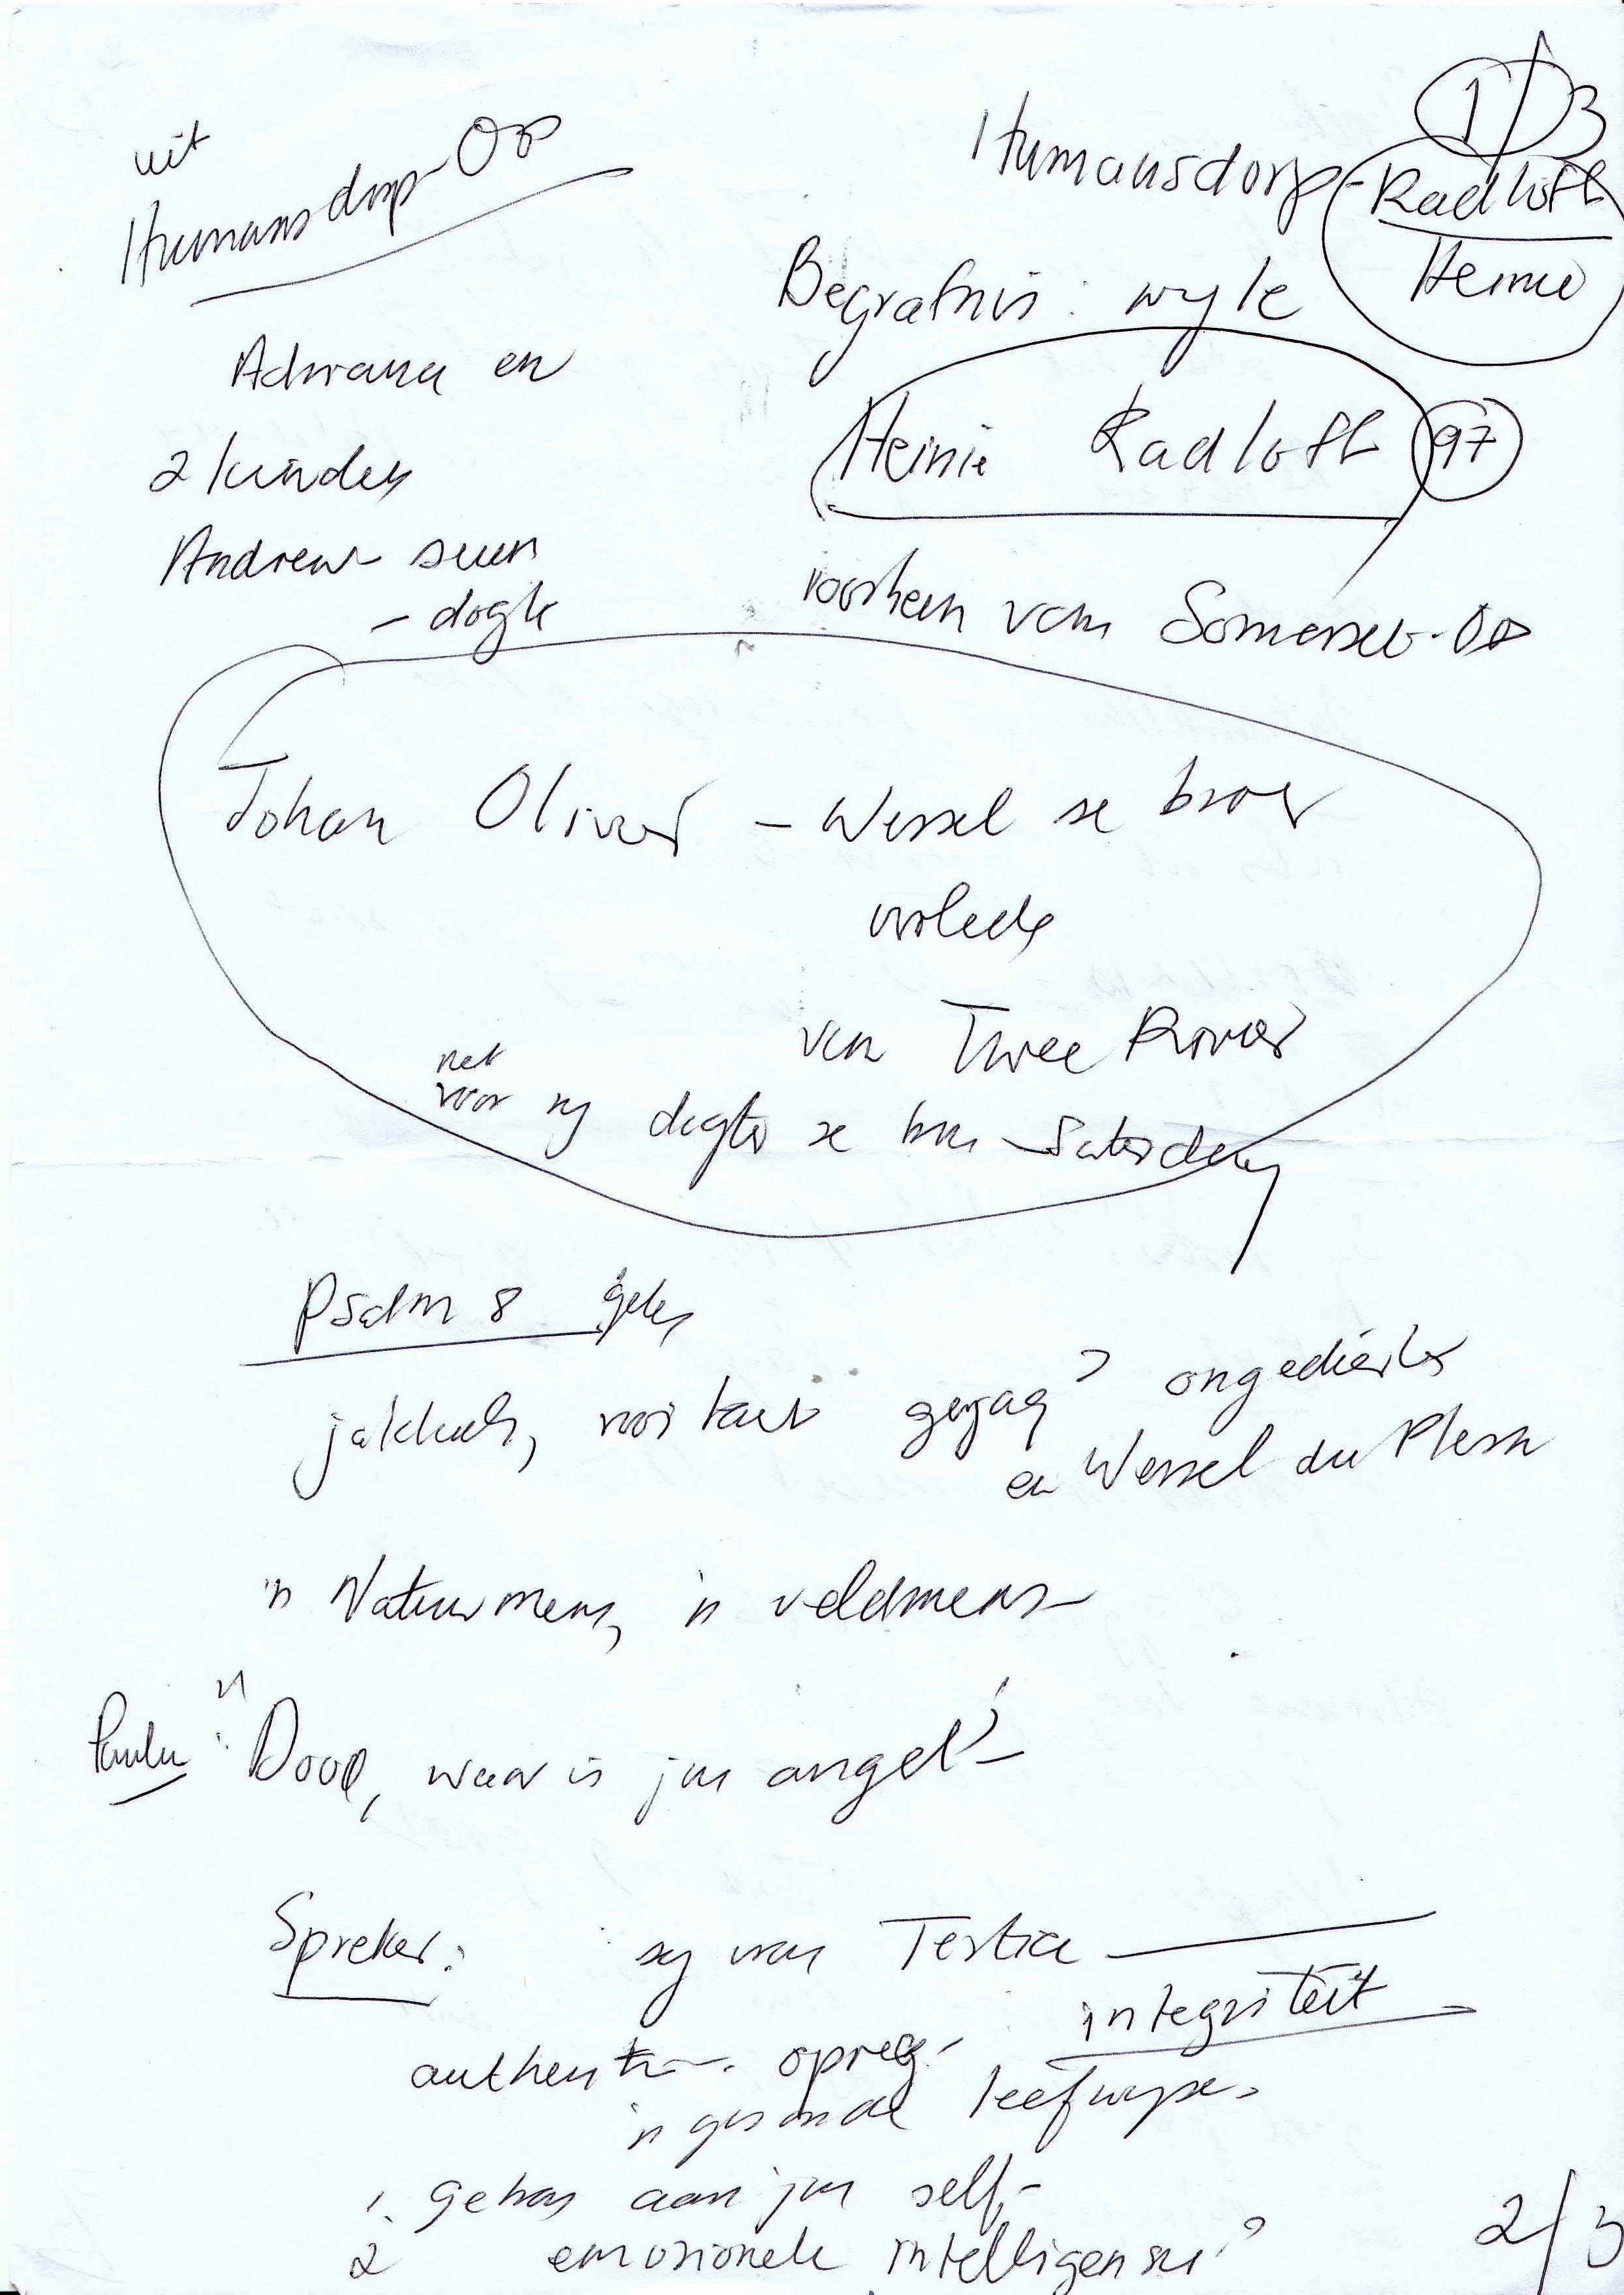 1/3
uit
Humansdorp-Op
Humansdorp - Radloff
Heinie
Begrafnis: wyle
Heinie Radloff 97
voorheen van Somerset-Oos
Adriana en
2 kinders
Andrew - seun
- dogter
Johan Olivier - Wessel se broer
oorlede
van Twee Rivier
net
voor sy dogter se troue Saterdag
Psalm 8 gelees
jakkals, rooikat gejag? ongediertes
en Wessel du Plessis
'n Natuurmens, 'n veldmens -
Paulus: "Dood, waar is jou angel? -
Spreker: sy vrou Tertia
integriteit
authentik - opreg -
'n gesonde leefwyse -
1. Getrou aan jou self, -
2 emosionele intelligensie?
2/3